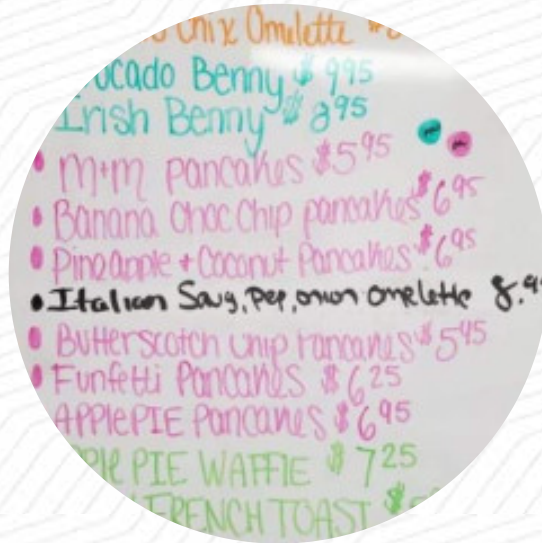 Chix Omelette $
Avocado Benny $ 9.95
Irish Benny $ 8.95
• M+M pancakes $5.95
• Banana Choc Chip pancakes $6.95
• Pineapple + Coconut Pancakes $6.95
• Italian Sausg, Pep, onion omelette 8.9
• Butterscotch Chip Pancakes $5.45
• Funfetti Pancakes $6.25
APPlePIE Pancakes $6.95
PIE WAFFlE $7.25
FRENCH TOAST $